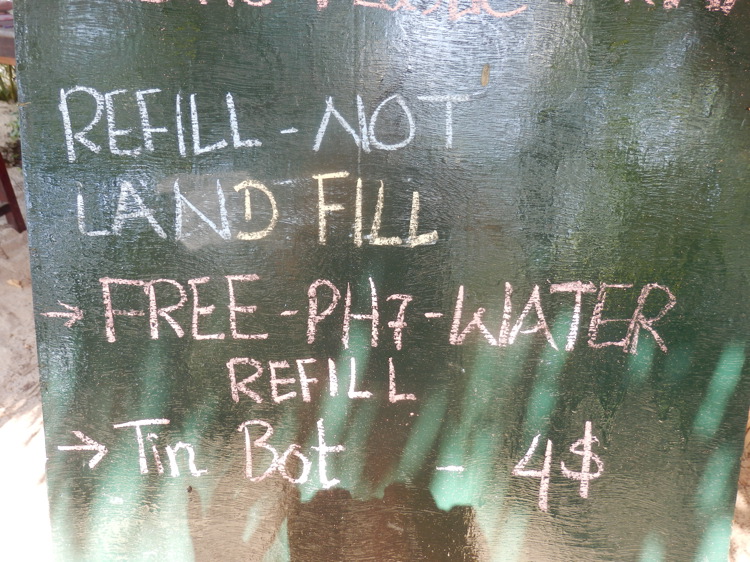 REFILL - NOT
LAND FILL
→ FREE - PH7 - WATER
REFILL
→ Tin Bot - 4$